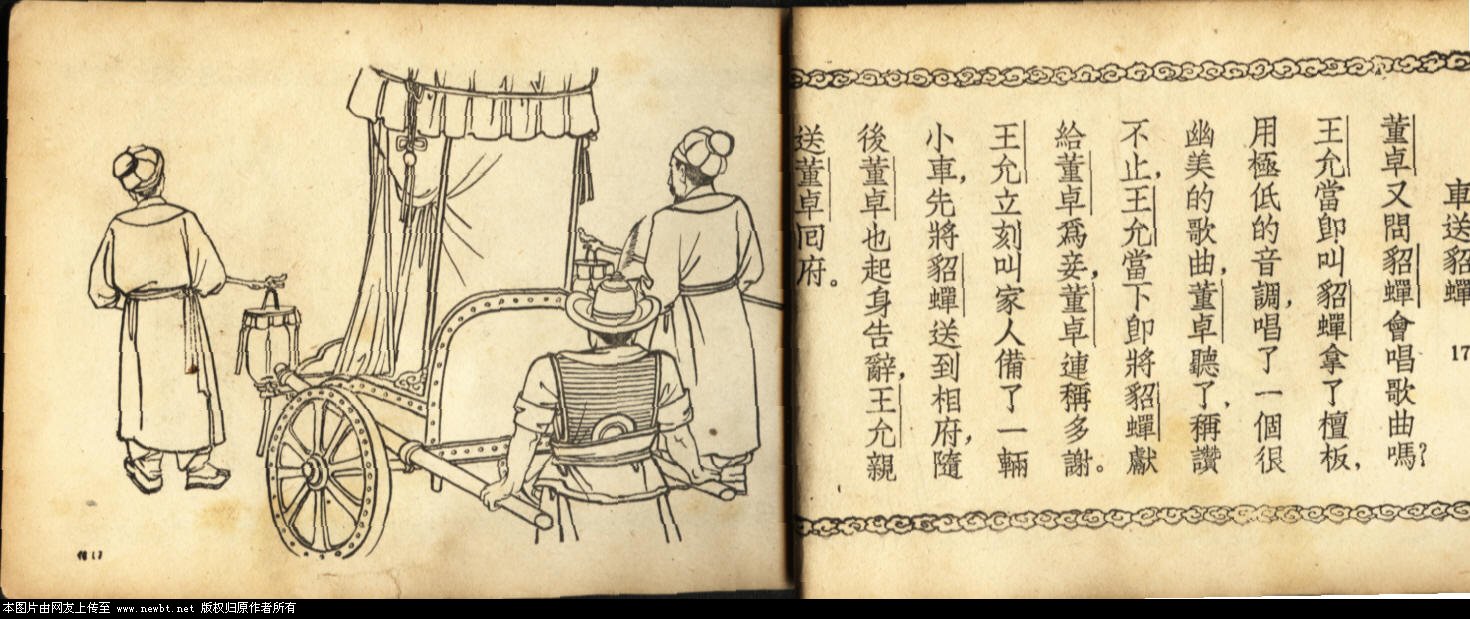 車送貂蟬 17
董卓又問貂蟬會唱歌曲嗎?
王允當即叫貂蟬拿了檀板,
用極低的音調,唱了一個很
幽美的歌曲,董卓聽了,稱讚
不止,王允當下即將貂蟬獻
給董卓爲妾,董卓連稱多謝。
王允立刻叫家人備了一輛
小車,先將貂蟬送到相府,隨
後董卓也起身告辭,王允親
送董卓囘府。
本图片由网友上传至 www.newbt.net 版权归原作者所有